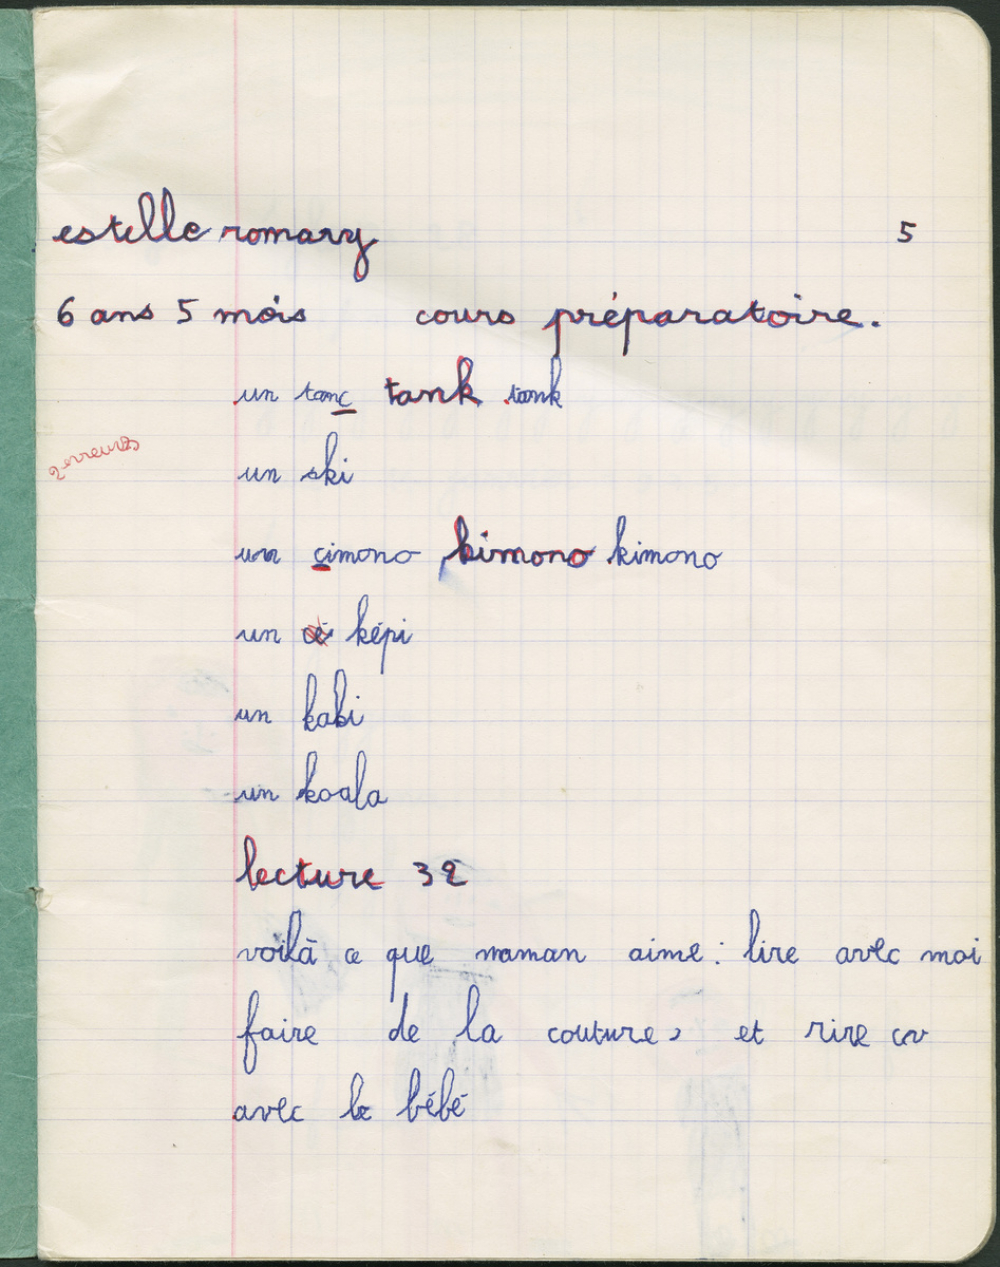 estelle romary 5
6 ans 5 mois cours préparatoire.
un tanc tank tank
2 erreurs
un ski
un cimono kimono kimono
un cé képi
un kaki
un koala
lecture 32
voilà ce que maman aime : lire avec moi
faire de la couture, et rire av
avec le bébé